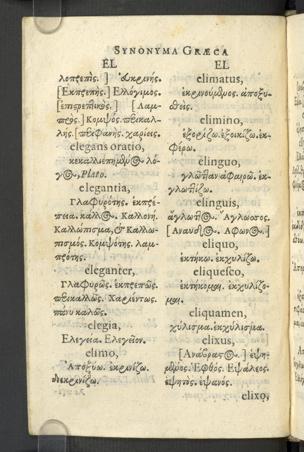 SYNONYMA GRÆCA
EL
λοπρεπὴς.] εὐκρινής.
[Εκπρεπής.] Ελλόγιμος.
[ἐπιτρεπτικὸς.] [Λαμ-
πρὸς] Κομψὸς. περικαλ-
λὴς. περιφανὴς. χαρίεις.
elegans oratio,
κεκαλλιεπημένος λό-
γος, Plato.
elegantia,
Γλαφυρότης. ἐκπρέ-
πεια. καλλος. Καλλονή.
Καλλώπισμα, & Καλλω-
πισμός. Κομψότης. λαμ-
πρότης.
eleganter,
Γλαφυρῶς. ἐκπρεπῶς.
περικαλῶς. Χαριέντως.
πάνυ καλῶς.
elegia,
Ελεγεία. Ελεγεῖον.
elimo,
Αποξύω. ἐκρινίζω.
διεκρινίζω.
EL
elimatus,
ἐκρινούμενος. ἀποξυ-
θείς.
elimino,
ἐξορίζω. ἐξοικίζω. ἐκ-
φέρω.
elinguo,
γλωτταναφαιρῶ. ἐκ-
γλωττίζω.
elinguis,
ἀγλωττος. Αγλωσσος.
[Αναυδος. Αφωνος.]
eliquo,
ἐκτήκω. ἐκχυλίζω.
eliquesco,
ἐκτήκομαι. ἐκχυλίζο-
μαι.
eliquamen,
χύλισμα. ἐκχύλισμα.
elixus,
[Ανάβραστος.] ἑψη-
μένος. Εφθὸς. Εψαλέος.
ἑψητός. ἑψανός.
elixo,